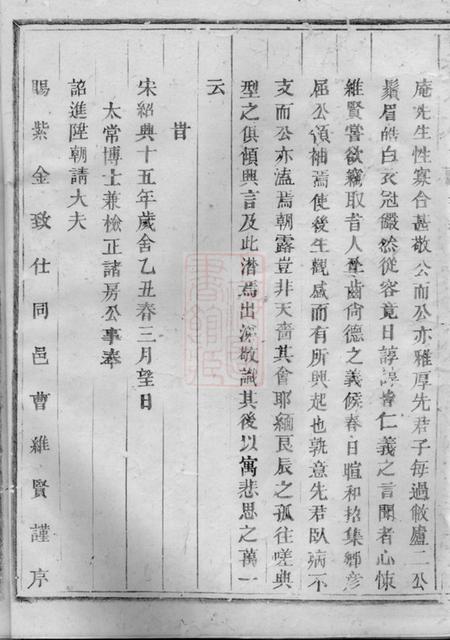 庵先生性寡合甚敬公而公亦雅厚先君子每過敝廬二公
鬚眉皓白衣冠儼然從容竟日諄諄皆仁義之言聞者心悚
維賢嘗欲竊取昔人叙齒尚德之義候春日暄和招集鄉彥
屈公領袖焉使後生觀感而有所興起也孰意先君臥病不
支而公亦溘焉朝露豈非天嗇其會耶緬良辰之孤往嗟典
型之俱傾興言及此潸焉出涕敬識其後以寓悲思之萬一
云
旹
宋紹興十五年歲舍乙丑春三月望日
太常博士兼檢正諸房公事奉
詔進陞朝請大夫
賜紫金致仕同邑曹維賢謹序